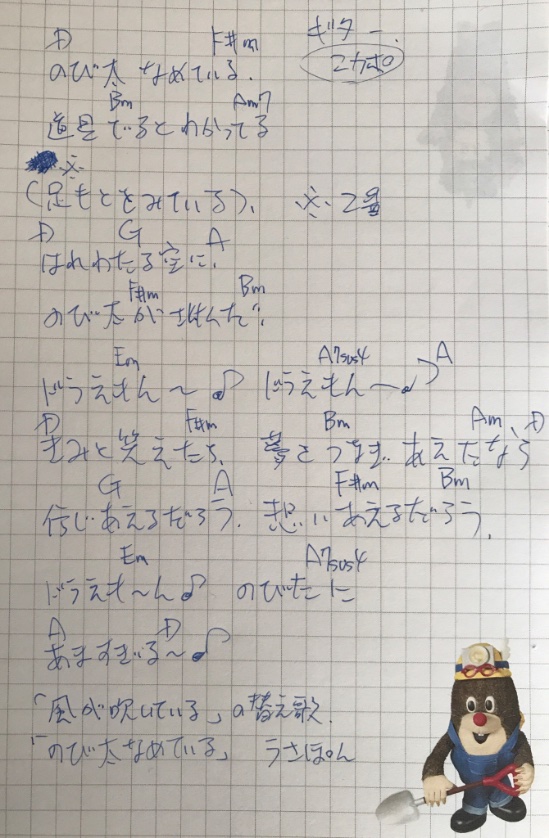 D F#m ギター.
のび太 なめている. 2カポ
Bm Am7
道具でるとわかってる
※
(足もとをみている). ※2番
D G A
はれわたる空に.
F#m Bm
のび太がさけんだ!!
Em A7sus4 A
ドラえもん〜♪ ドラえもん〜♪
D F#m Bm Am、D
きみと笑えたら、 夢をつなぎあえたなら
G A F#m Bm
信じあえるだろう. 想いあえるだろう.
Em A7sus4
ドラえも〜ん♪ のびたに
A D
あますぎ〜る〜♪
「風が吹いている」の替え歌.
「のび太なめている」 うさぽん